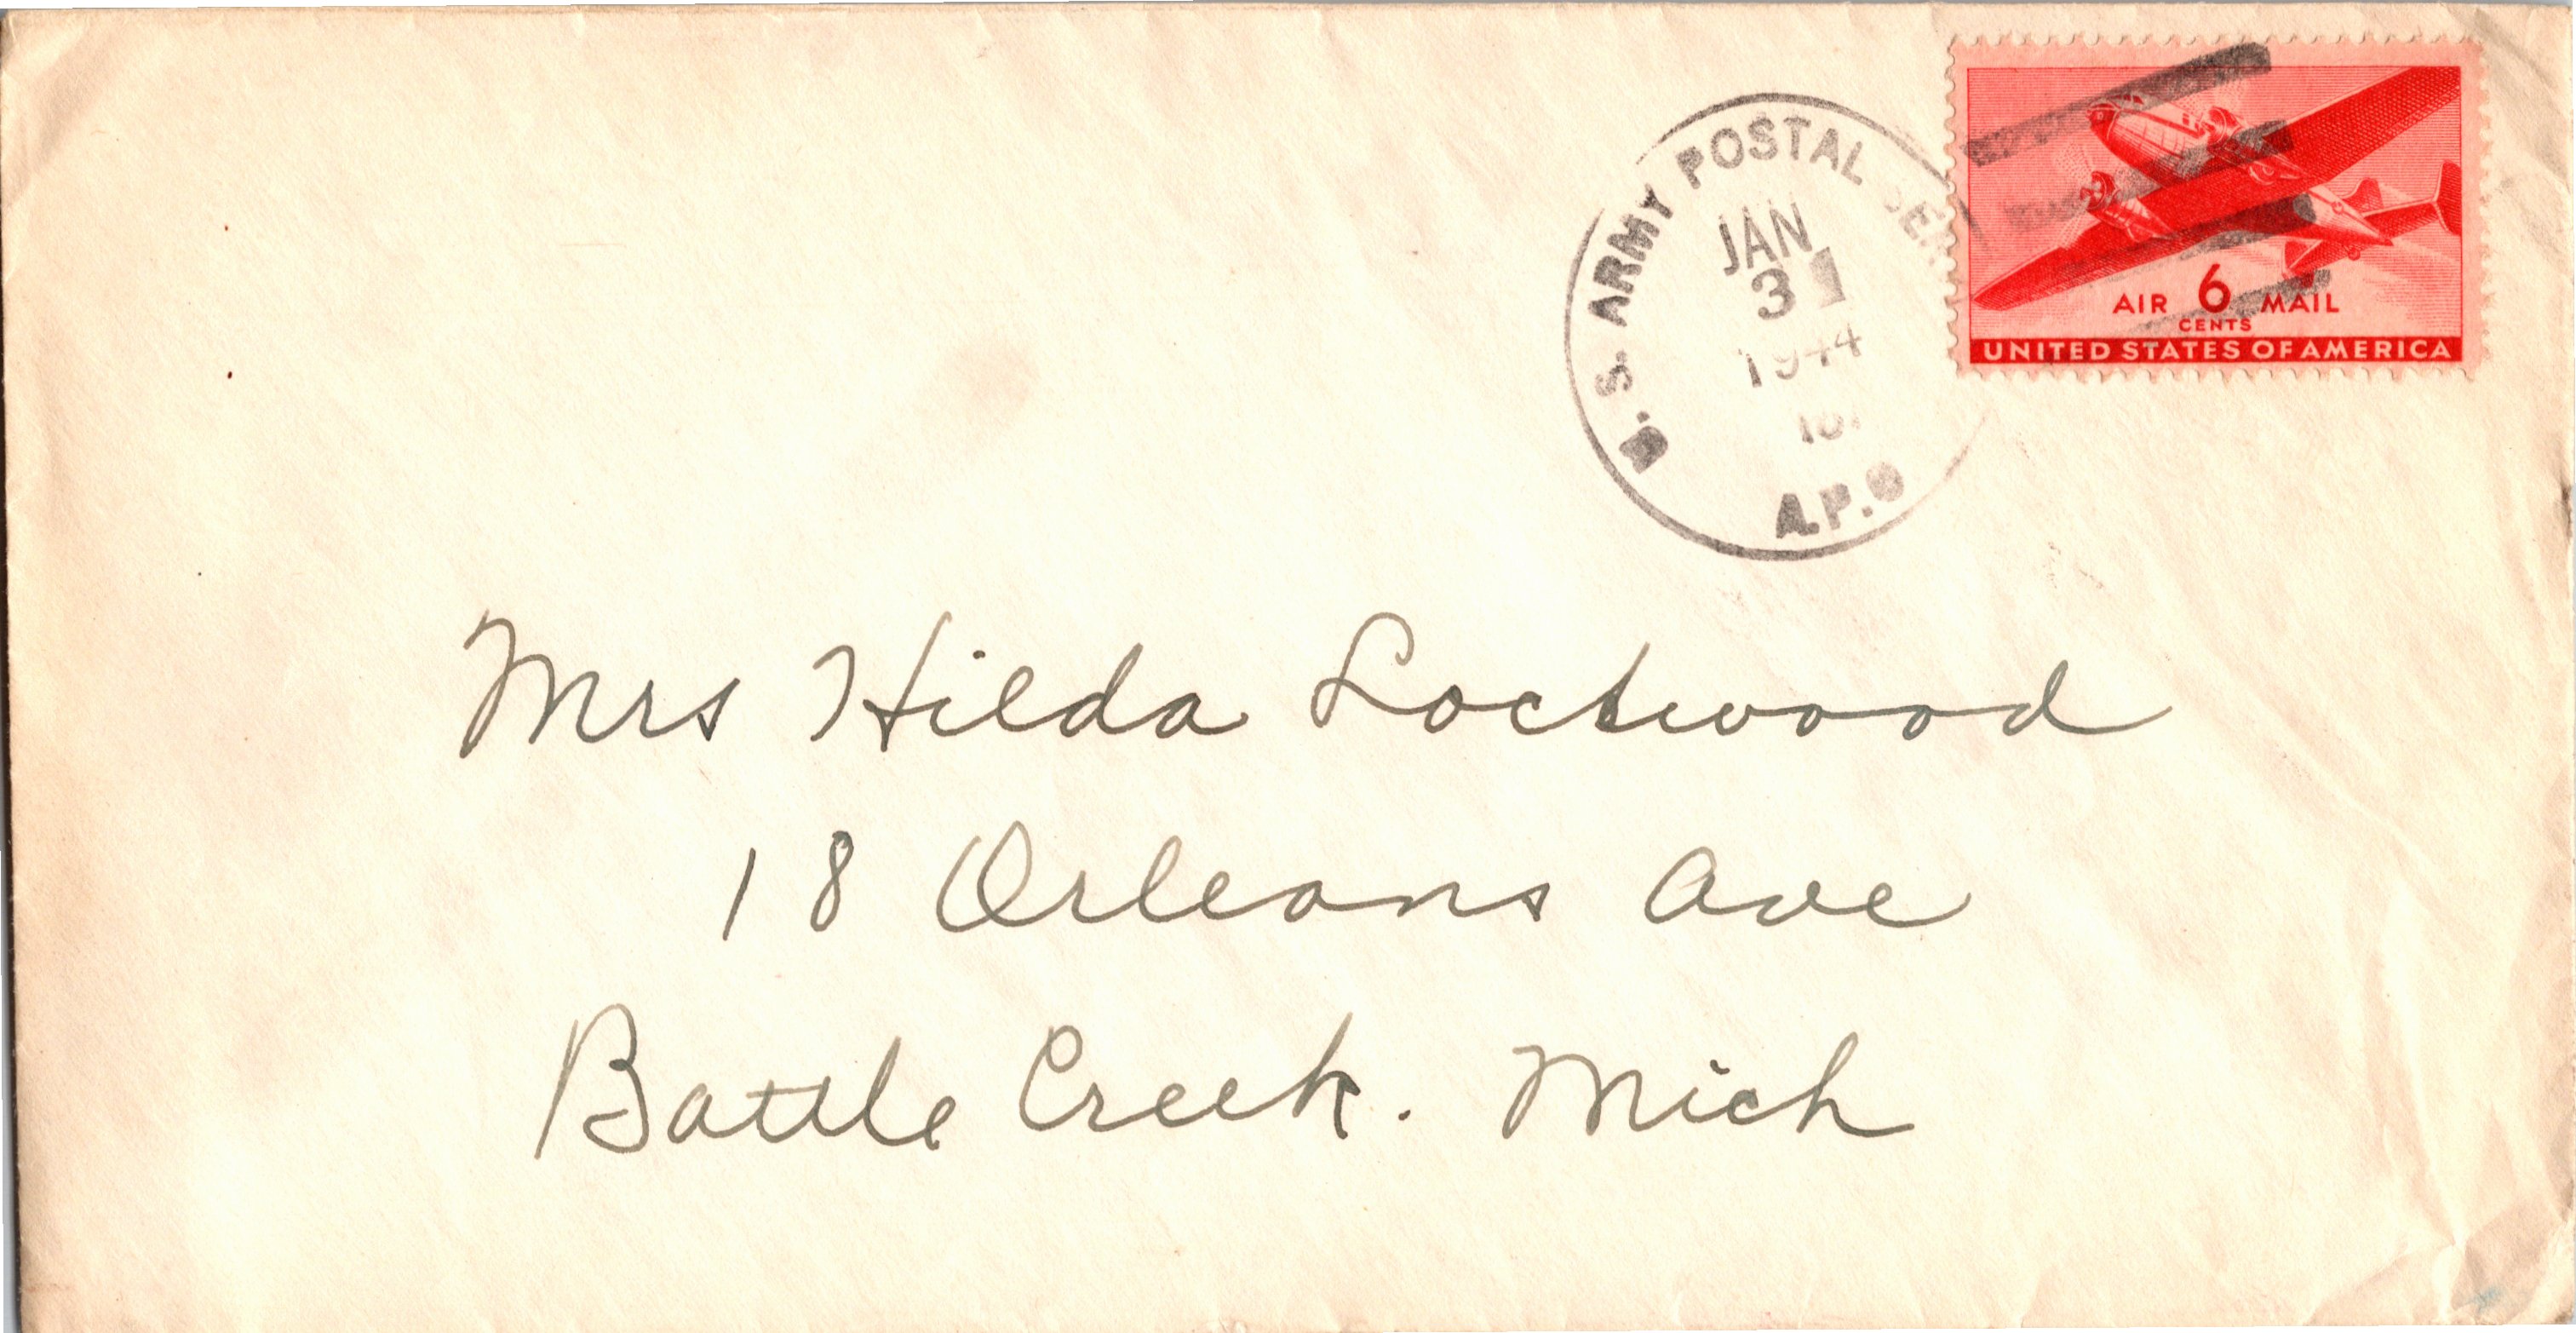 U.S. ARMY POSTAL
JAN
31
1944
A.P.O
AIR 6 MAIL
CENTS
UNITED STATES OF AMERICA
Mrs Hilda Lockwood
18 Orleans Ave
Battle Creek. Mich